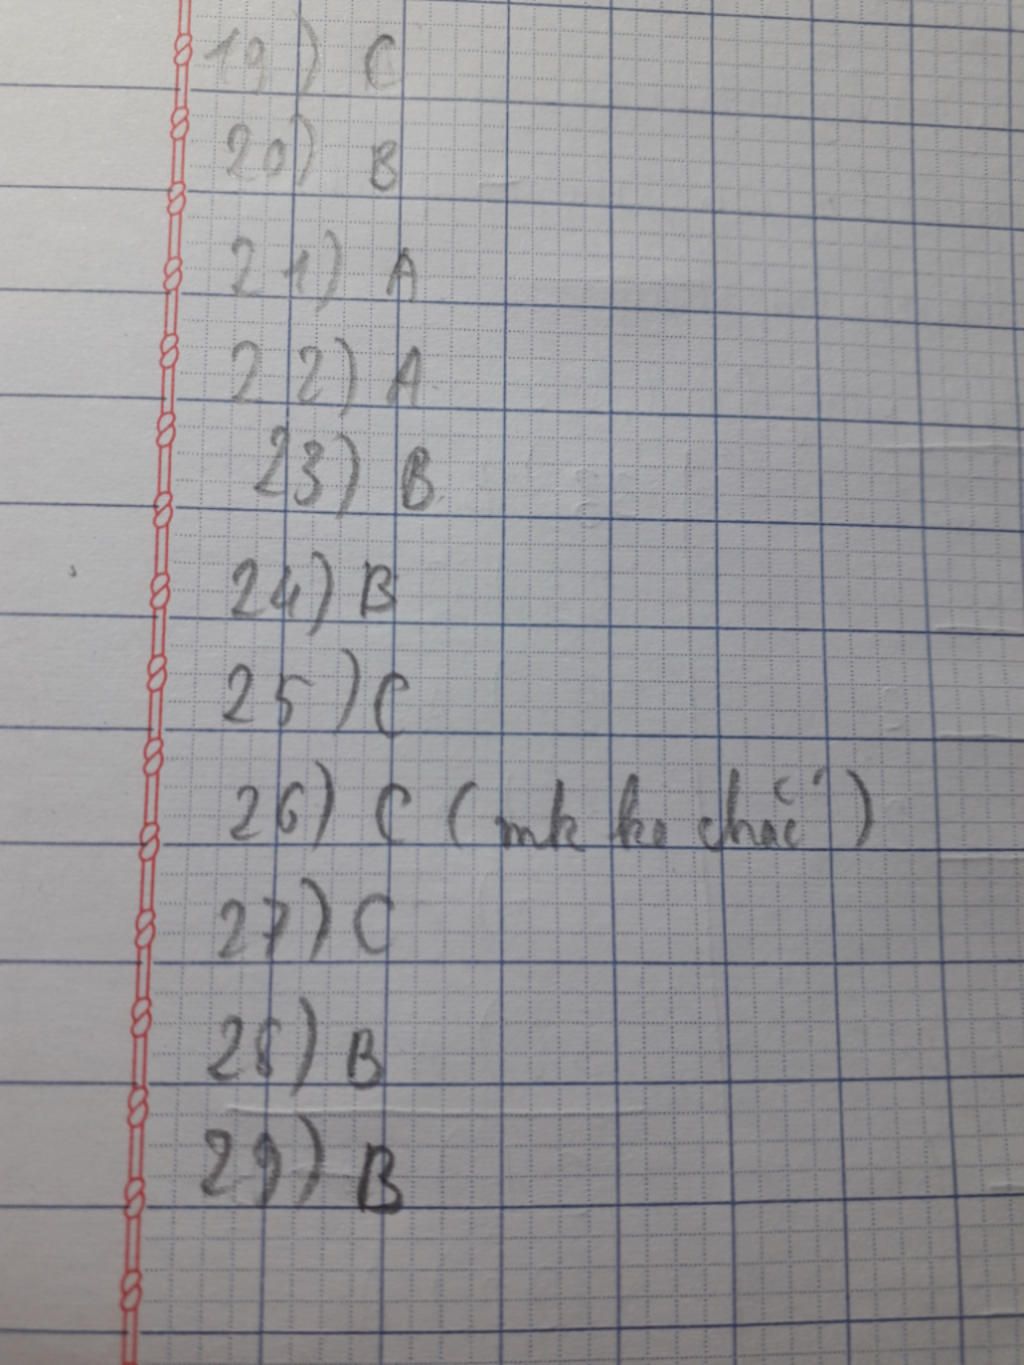 19) C
20) B
21) A
22) A
23) B
24) B
25) C
26) C (mk ko chắc)
27) C
28) B
29) B